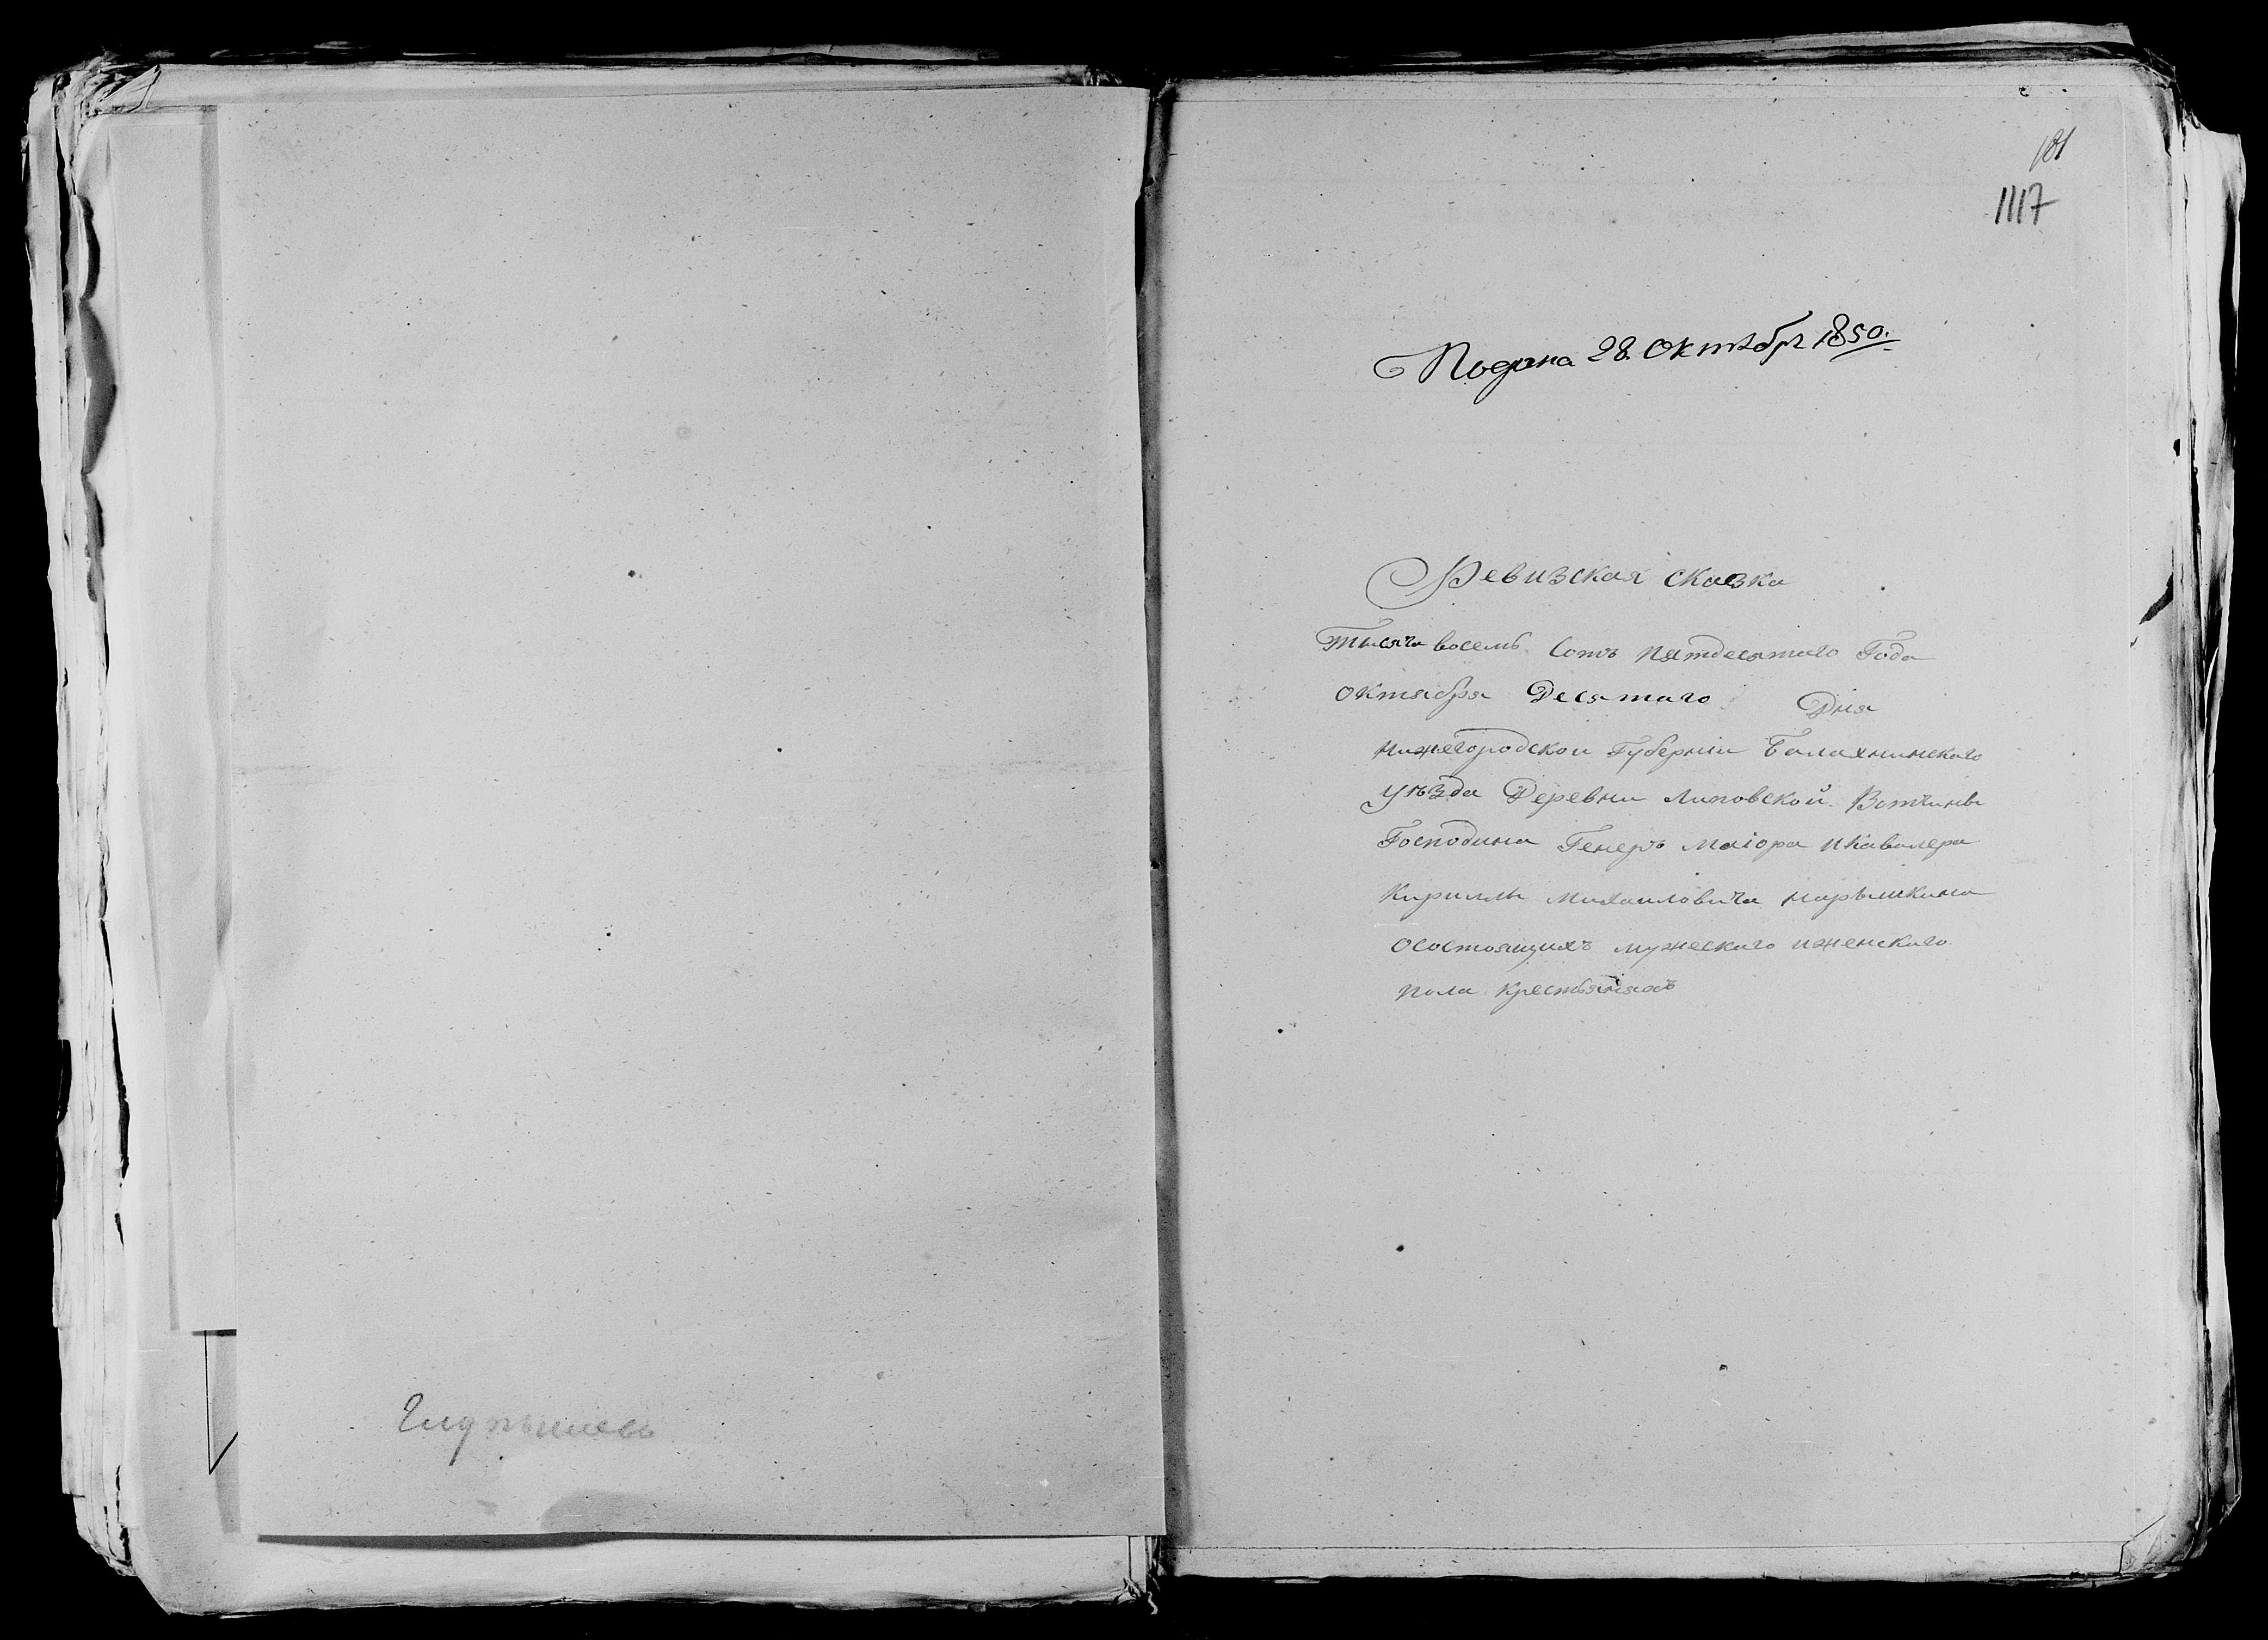 181
1117
Подана 28. Октября 1850.
Ревизская сказка
Тысяча восемь сотъ пятдесятаго Года
октября Десятаго Дня
нижегородской Губерніи Балахнинскаго
уѣзда Деревни Липовской Вотчины
Господина Генеръ Маіора и Кавалера
Кириллы Михаиловича нарышкина
о состоящихъ мужескаго и женскаго
пола крестьянахъ